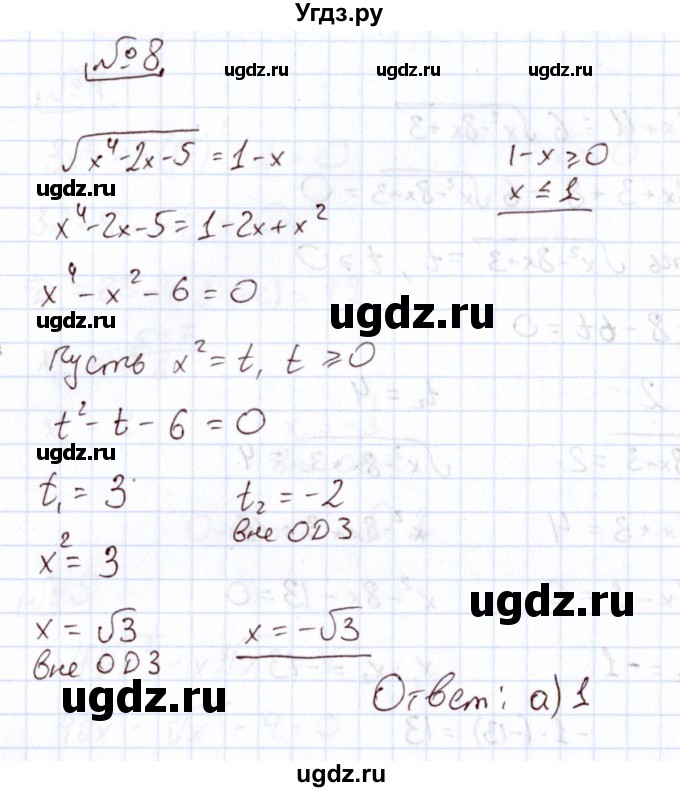 Угдз.ру
№8
ugdz.ru ugdz.ru ugdz.ru
√(x⁴-2x-5) = 1-x
1-x ≥ 0
ugdz.ru
x ≤ 1
x⁴-2x-5 = 1-2x+x²
x⁴ - x² - 6 = 0
ugdz.ru
ugdz.ru
Пусть x² = t, t ≥ 0
t² - t - 6 = 0
ugdz.ru
t₁ = 3
t₂ = -2
вне ОДЗ
x² = 3
ugdz.ru
x = √3
x = -√3
вне ОДЗ
ugdz.ru
Ответ: а) 1
ugdz.ru